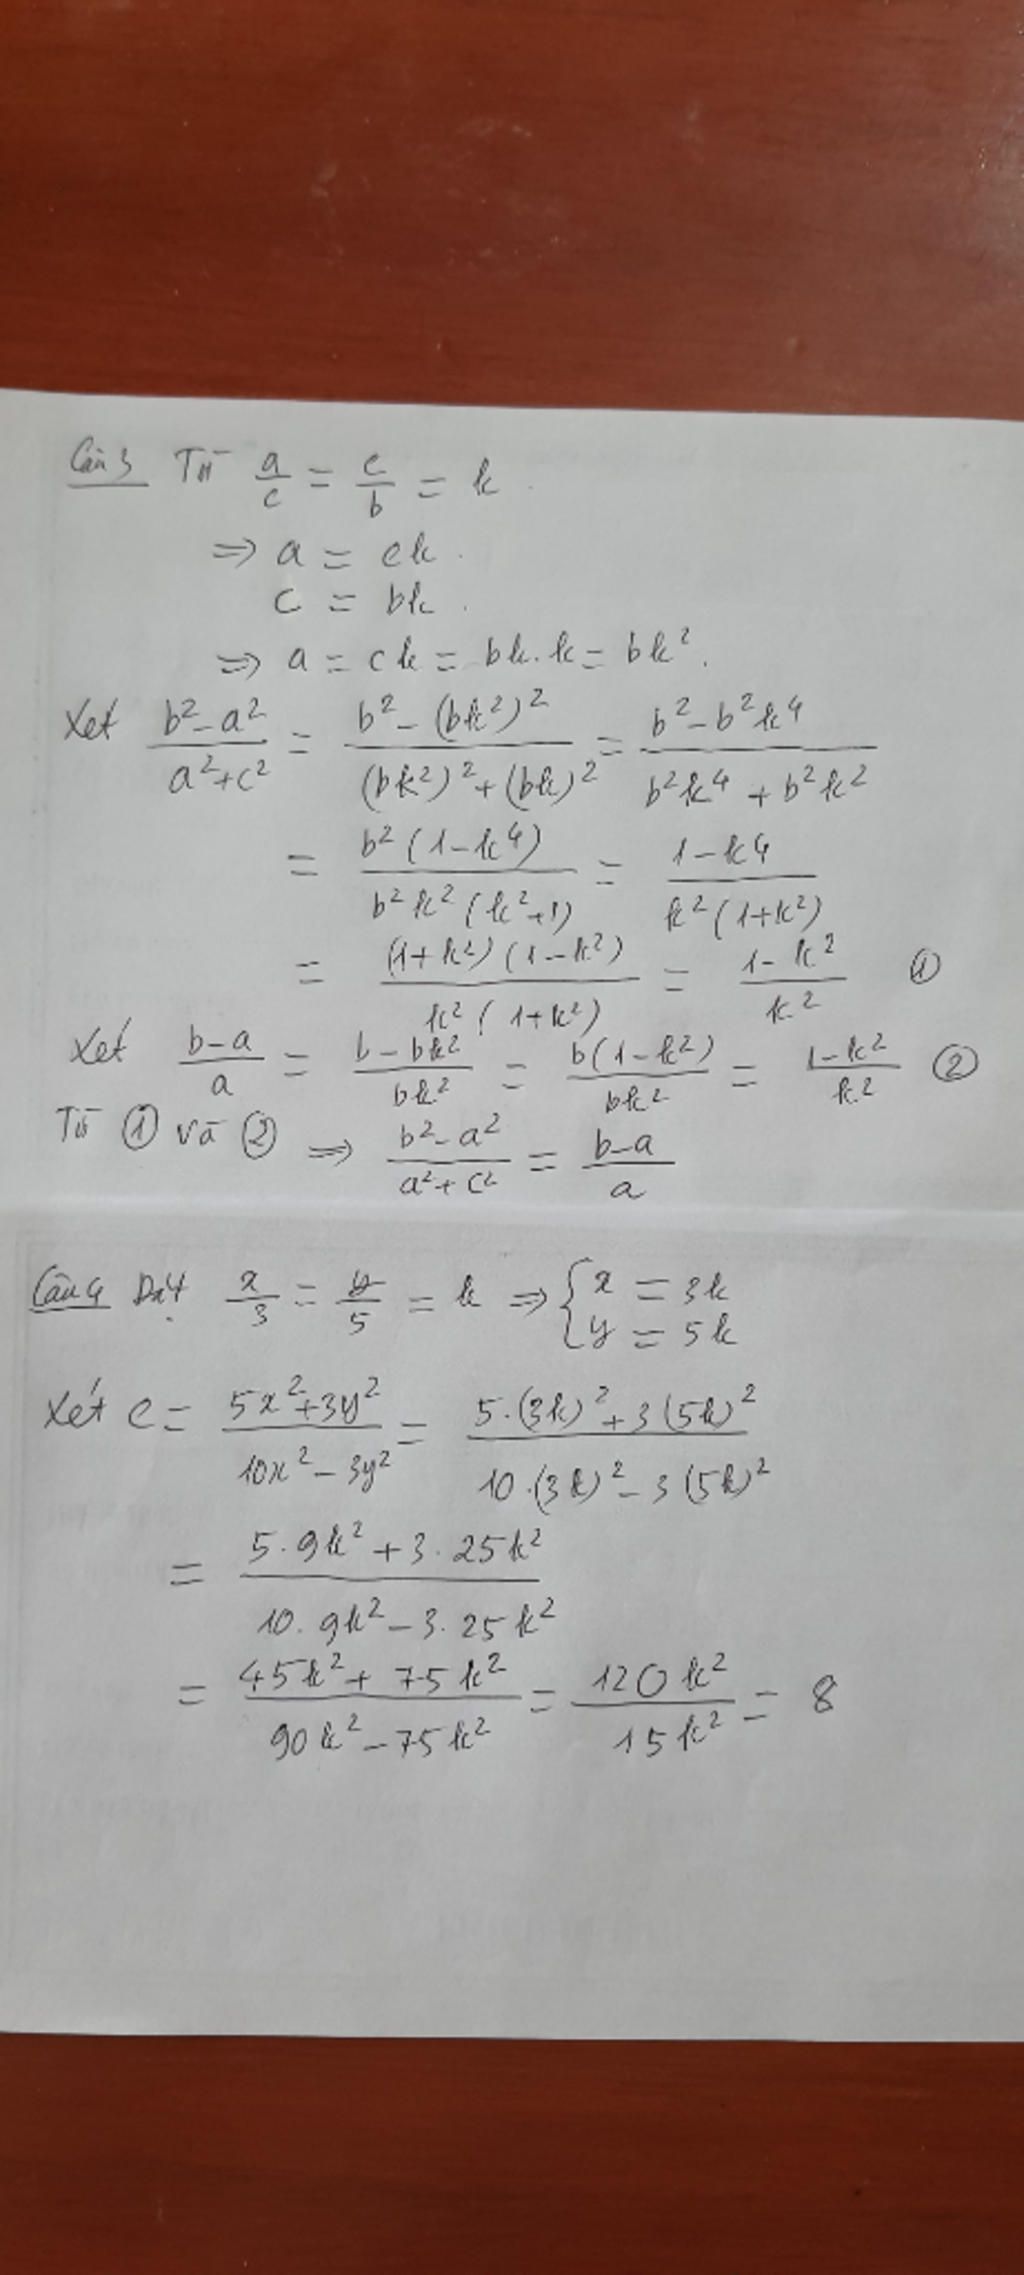 Câu 3 Từ a/c = c/b = k.
=> a = ck.
c = bk.
=> a = ck = bk.k = bk².
Xet (b²-a²)/(a²+c²) = (b²-(bk²)²)/((bk²)²+(bk)²) = (b²-b²k⁴)/(b²k⁴+b²k²)
= (b²(1-k⁴))/(b²k²(k²+1)) = (1-k⁴)/(k²(1+k²))
= ((1+k²)(1-k²))/(k²(1+k²)) = (1-k²)/k² ①
Xét (b-a)/a = (b-bk²)/(bk²) = (b(1-k²))/(bk²) = (1-k²)/k² ②
Từ ① và ② => (b²-a²)/(a²+c²) = (b-a)/a
Câu 4 Đặt x/3 = y/5 = k => { x = 3k
y = 5k
Xét C = (5x²+3y²)/(10x²-3y²) = (5.(3k)²+3(5k)²)/(10.(3k)²-3(5k)²)
= (5.9k²+3.25k²)/(10.9k²-3.25k²)
= (45k²+75k²)/(90k²-75k²) = 120k²/15k² = 8